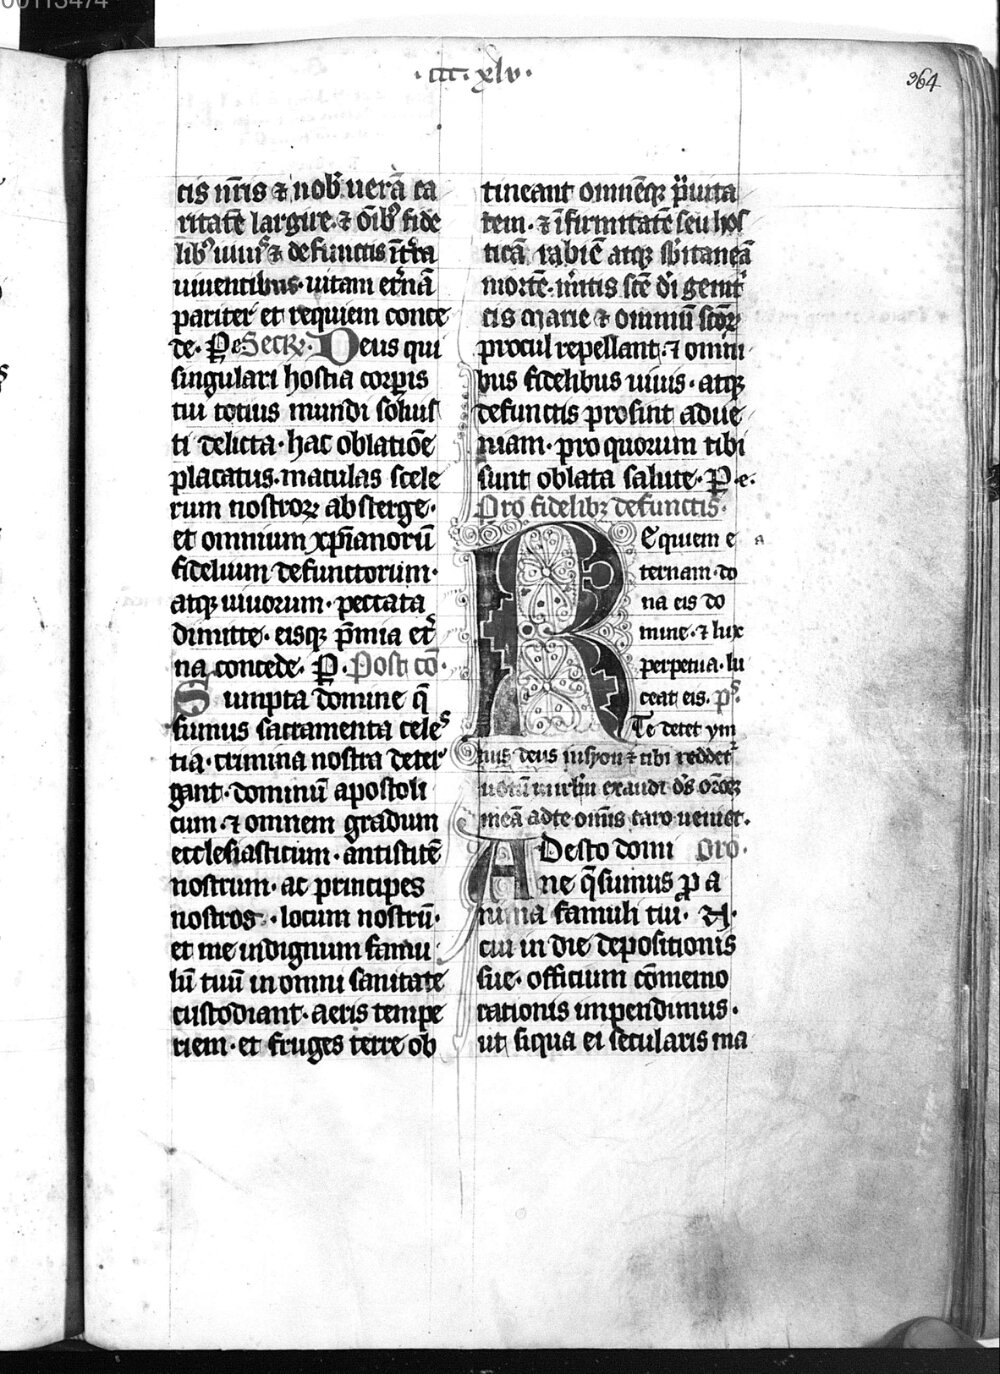 00113474
· ccc · xlv ·
364
cis nr̄is ⁊ nob̾ uerā ca
ritatē largire · ⁊ oīb᷒ fide
lib᷒ uiuis ⁊ defunctis ī t̄ra
uiuentibus · uitam et̾nā
pariter et requiem conce
de · P̱ e Secr̄ · Deus qui
singulari hostia corꝑis
tui totius mundi soluis
ti delicta · hac oblatiōe
placatus · maculas scele
rum nostroꝝ absterge ·
et omnium xp̄ianorū
fidelium defunctorum ·
atqꝫ uiuorum · peccata
dimitte · eisqꝫ p̄mia et̾
na concede · P̱ · Post cō ·
Sumpta domine q̄
sumus sacramenta celes
tia · crimina nostra deter
gant · dominū apostoli
cum · ⁊ omnem gradum
ecclesiasticum · antistitē
nostrum · ac principes
nostros · locum nostrū ·
et me indignum famu
lū tuū in omni sanitate
custodiant · aeris tempe
riem · et fruges terre ob
tineant omnēqꝫ p̄uita
tem · ⁊ īfirmitatē seu hos
ticā rabiē atqꝫ sb̾itaneā
mortē · m̄itis sc̄e dī genit̾
cis marie ⁊ omniū sc̄oꝝ
procul repellant · ⁊ omni
bus fidelibus uiuis · atqꝫ
defunctis prosint ad ue
niam · pro quorum tibi
sunt oblata salute · P̱ · e ·
Pro fidelibꝫ defunctis ·
Requiem e
ternam · do
na eis do
mine · ⁊ lux
perpetua · lu
ceat eis · p̄s
Te decet ym
nus deus in syon ⁊ tibi reddet̾
exaudi
meā ad te om̄is caro ueniet ·
Adesto domi Oro ·
ne q̄sumus ꝓ a
nima famuli tui · N ·
cui in die depositionis
sue · officium cōmemo
rationis impendimus ·
ut siqua ei secularis ma